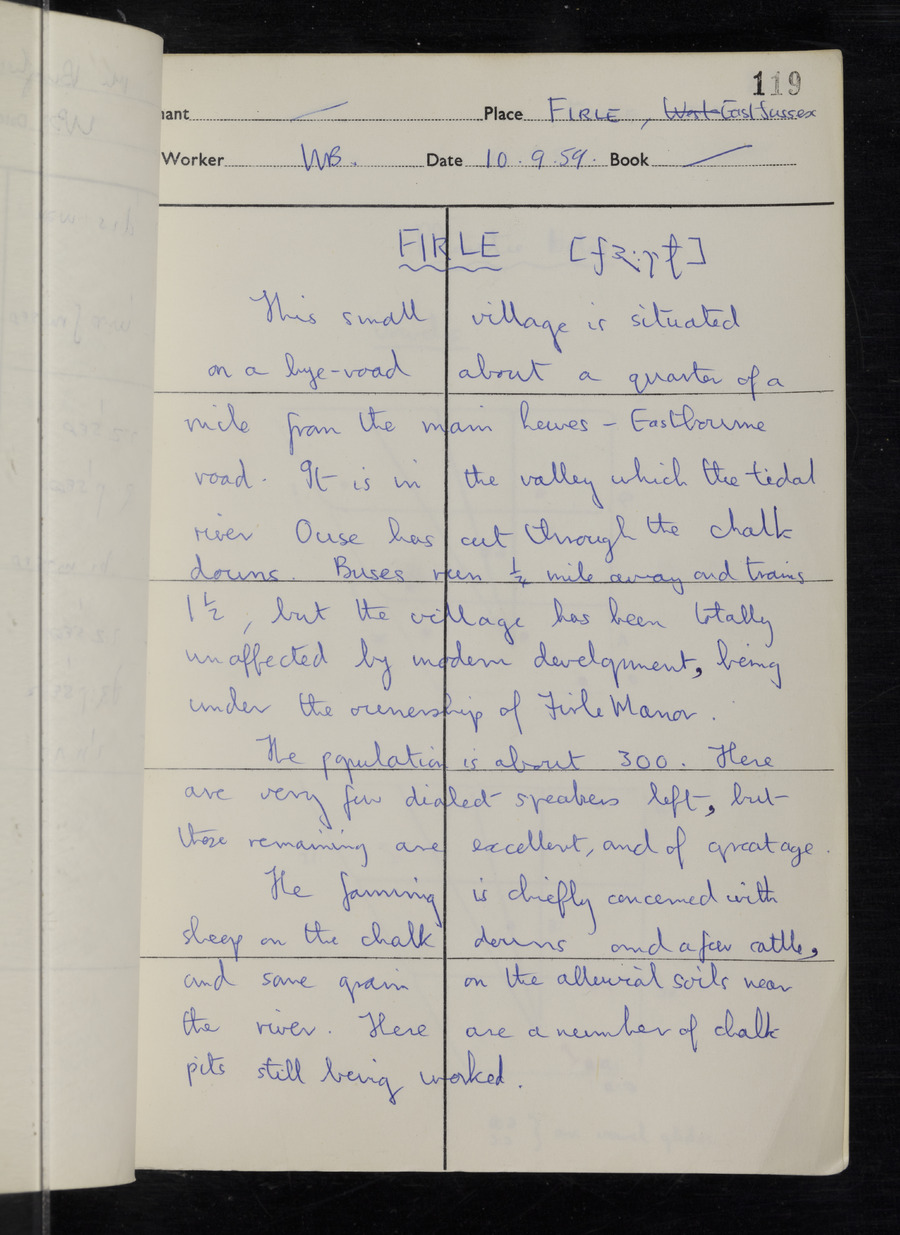 119
Place FIRLE, West East Sussex
Worker WB. Date 10.9.59. Book
FIRLE
This small village is situated
on a bye-road about a quarter of a
mile from the main Lewes - Eastbourne
road. It is in the valley which the tidal
river Ouse has cut through the chalk
downs. Buses run ¼ mile away and trains
1½, but the village has been totally
unaffected by modern development, being
under the ownership of Firle Manor.
The population is about 300. There
are very few dialect speakers left, but
those remaining are excellent, and of great age.
The farming is chiefly concerned with
sheep on the chalk downs and a few cattle,
and some grain on the alluvial soils near
the river. There are a number of chalk
pits still being worked.